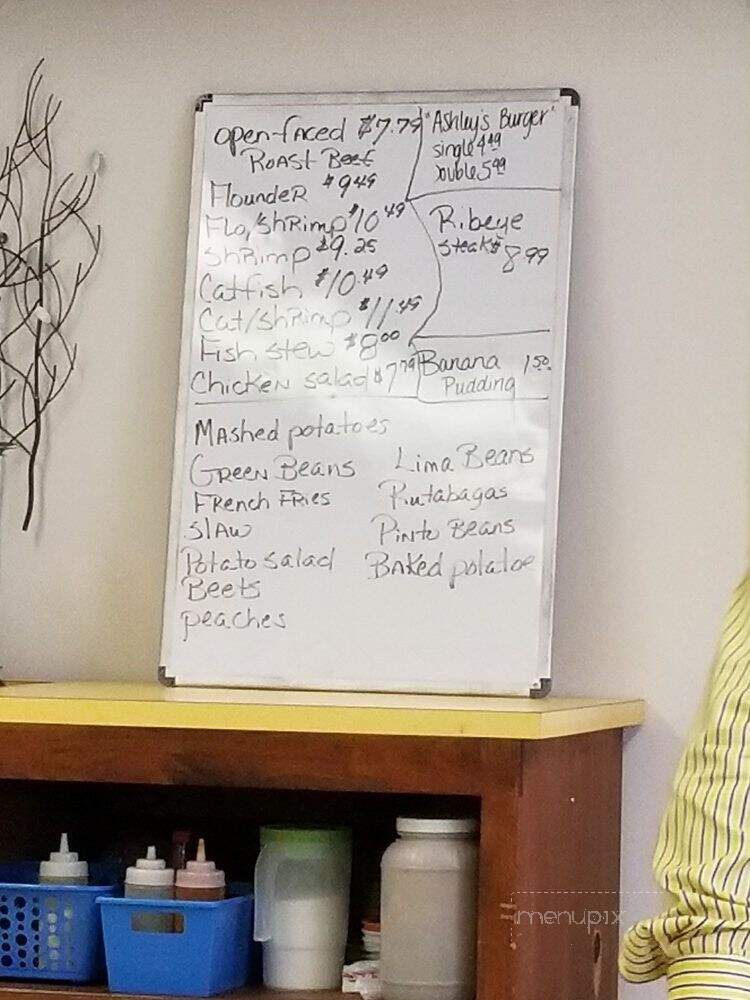 open-faced $7.79
Roast Beef
Flounder $9.49
Flo/Shrimp $10.49
Shrimp $9.25
Catfish $10.49
Cat/Shrimp $11.49
Fish Stew $8.00
Chicken Salad $7.79
"Ashley's Burger"
single 4.49
Double 5.99
Ribeye
Steak $8.99
Banana 1.50
Pudding
Mashed potatoes
Green Beans
French Fries
Slaw
Potato Salad
Beets
peaches
Lima Beans
Rutabagas
Pinto Beans
Baked potatoe
menupix